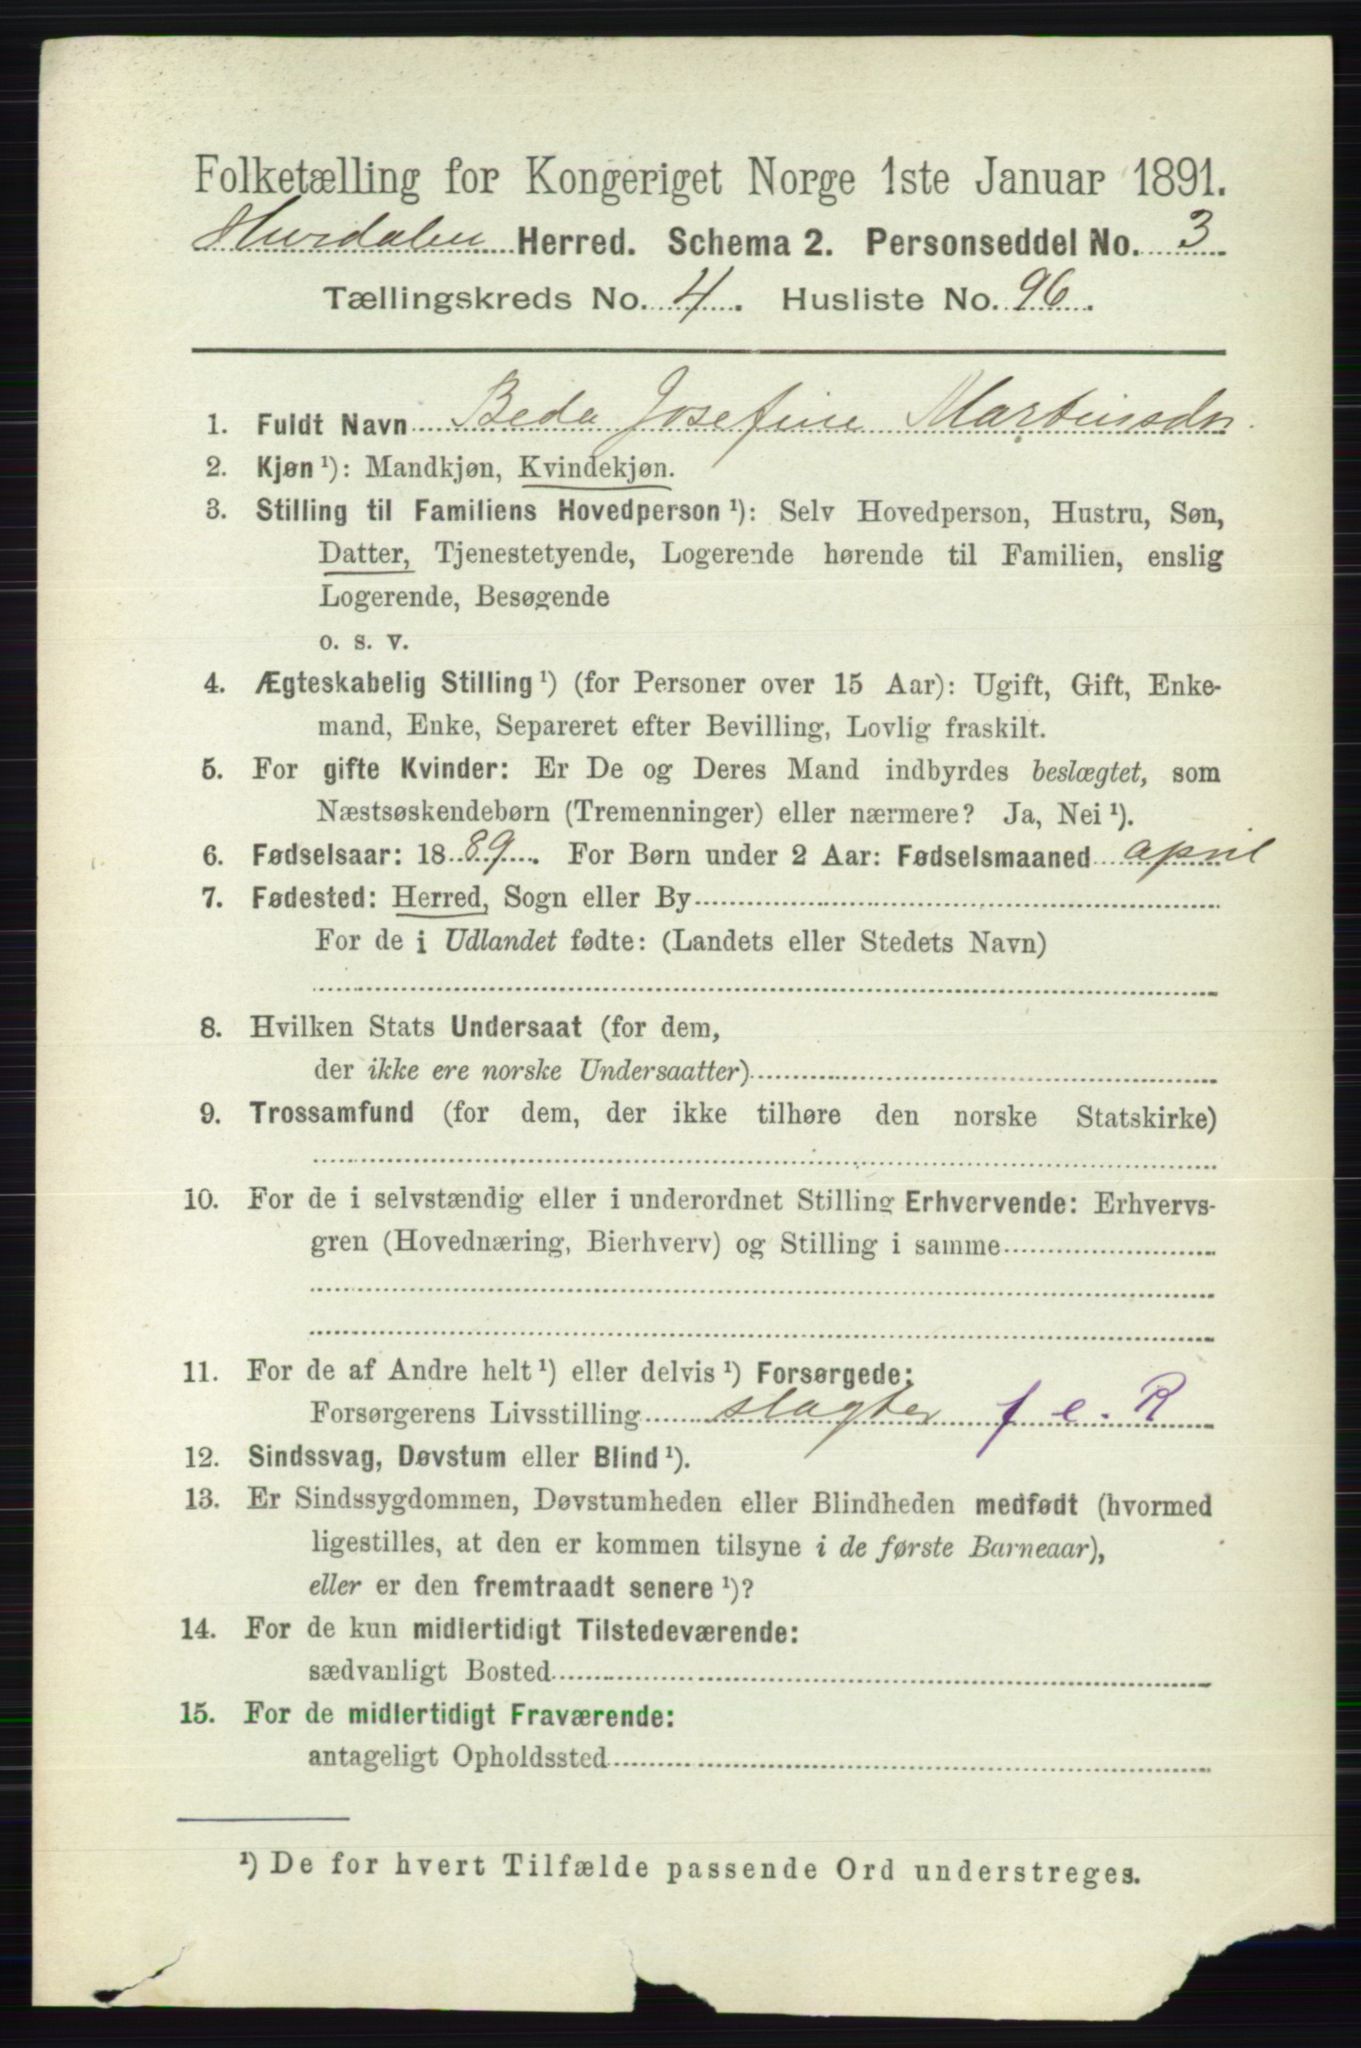 Folketælling for Kongeriget Norge 1ste Januar 1891.
Hurdalen Herred. Schema 2. Personseddel No. 3
Tællingskreds No. 4. Husliste No. 96.
1. Fuldt Navn Beda Josefine Martinsdr.
2. Kjøn ¹): Mandkjøn, Kvindekjøn.
3. Stilling til Familiens Hovedperson ¹): Selv Hovedperson, Hustru, Søn,
Datter, Tjenestetyende, Logerende hørende til Familien, enslig
Logerende, Besøgende
o. s. v.
4. Ægteskabelig Stilling ¹) (for Personer over 15 Aar): Ugift, Gift, Enke-
mand, Enke, Separeret efter Bevilling, Lovlig fraskilt.
5. For gifte Kvinder: Er De og Deres Mand indbyrdes beslægtet, som
Næstsøskendebørn (Tremenninger) eller nærmere? Ja, Nei ¹).
6. Fødselsaar: 1889. For Børn under 2 Aar: Fødselsmaaned april
7. Fødested: Herred, Sogn eller By
For de i Udlandet fødte: (Landets eller Stedets Navn)
8. Hvilken Stats Undersaat (for dem,
der ikke ere norske Undersaatter)
9. Trossamfund (for dem, der ikke tilhøre den norske Statskirke)
10. For de i selvstændig eller i underordnet Stilling Erhvervende: Erhvervs-
gren (Hovednæring, Bierhverv) og Stilling i samme
11. For de af Andre helt ¹) eller delvis ¹) Forsørgede:
Forsørgerens Livsstilling slagter f e. R
12. Sindssvag, Døvstum eller Blind ¹).
13. Er Sindssygdommen, Døvstumheden eller Blindheden medfødt (hvormed
ligestilles, at den er kommen tilsyne i de første Barneaar),
eller er den fremtraadt senere ¹)?
14. For de kun midlertidigt Tilstedeværende:
sædvanligt Bosted
15. For de midlertidigt Fraværende:
antageligt Opholdssted
¹) De for hvert Tilfælde passende Ord understreges.